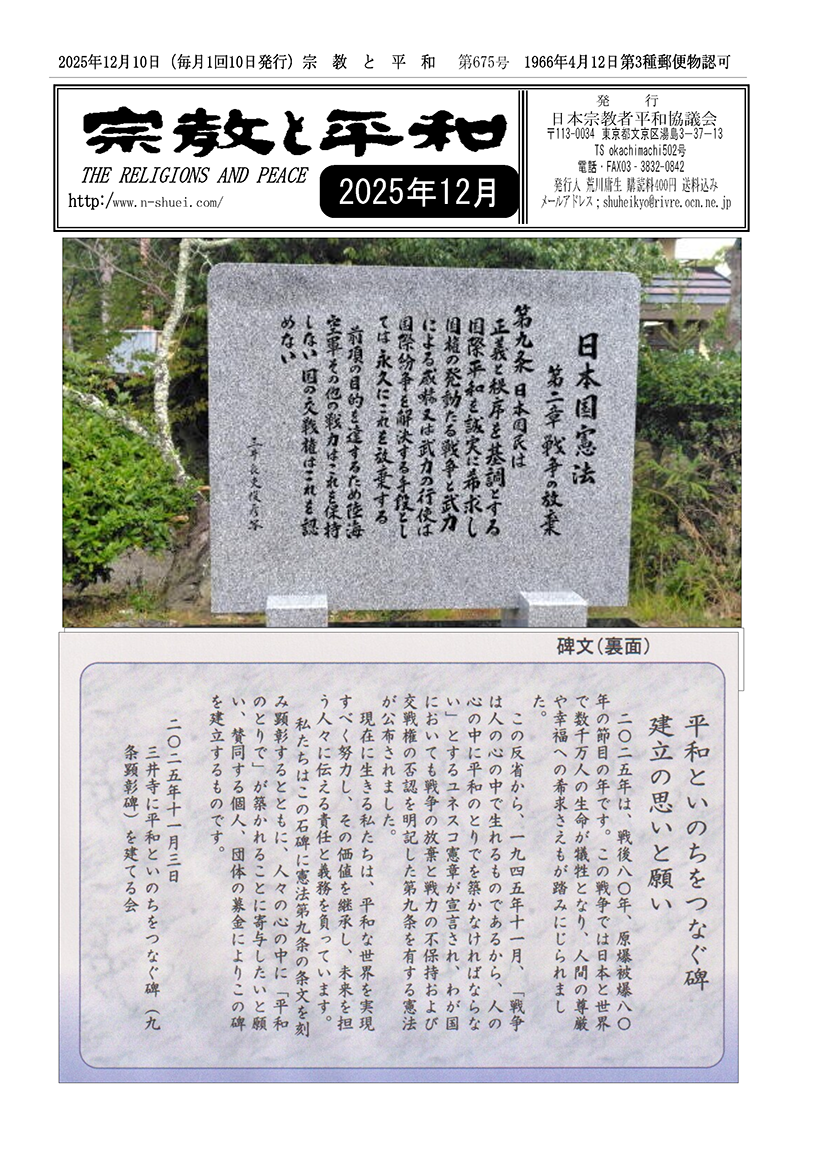 2025年12月10日（毎月1回10日発行）宗 教 と 平 和 第675号 1966年4月12日第3種郵便物認可
宗教と平和
THE RELIGIONS AND PEACE
http:/www.n-shuei.com/
2025年12月
発 行
日本宗教者平和協議会
〒113-0034 東京都文京区湯島3-37-13
TS okachimachi502号
電話・FAX03-3832-0842
発行人 荒川庸生 購読料400円 送料込み
メールアドレス；shuheikyo@rivre.ocn.ne.jp
日本国憲法
第二章 戦争の放棄
第九条 日本国民は
正義と秩序を基調とする
国際平和を誠実に希求し
国権の発動たる戦争と武力
による威嚇又は武力の行使は
国際紛争を解決する手段とし
ては 永久にこれを放棄する
前項の目的を達するため陸海
空軍その他の戦力はこれを保持
しない 国の交戦権はこれを認
めない
碑文（裏面）
平和といのちをつなぐ碑
建立の思いと願い
二〇二五年は、戦後八〇年、原爆被爆八〇
年の節目の年です。この戦争では日本と世界
で数千万人の生命が犠牲となり、人間の尊厳
や幸福への希求さえもが踏みにじられまし
た。
この反省から、一九四五年十一月、「戦争
は人の心の中で生れるものであるから、人の
心の中に平和のとりでを築かなければならな
い」とするユネスコ憲章が宣言され、わが国
においても戦争の放棄と戦力の不保持および
交戦権の否認を明記した第九条を有する憲法
が公布されました。
現在に生きる私たちは、平和な世界を実現
すべく努力し、その価値を継承し、未来を担
う人々に伝える責任と義務を負っています。
私たちはこの石碑に憲法第九条の条文を刻
み顕彰するとともに、人々の心の中に「平和
のとりで」が築かれることに寄与したいと願
い、賛同する個人、団体の募金によりこの碑
を建立するものです。
二〇二五年十一月三日
三井寺に平和といのちをつなぐ碑（九
条顕彰碑）を建てる会